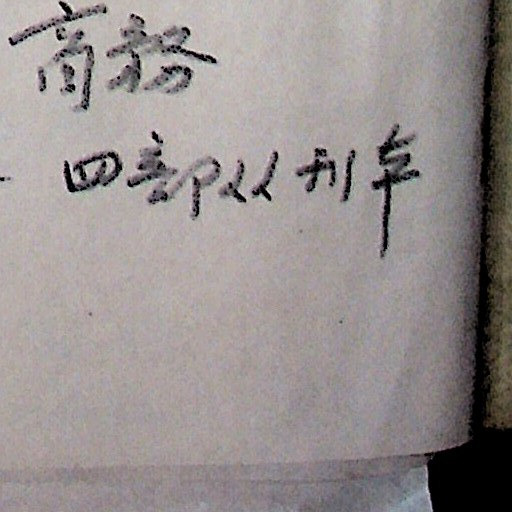 商務
四部从刊本